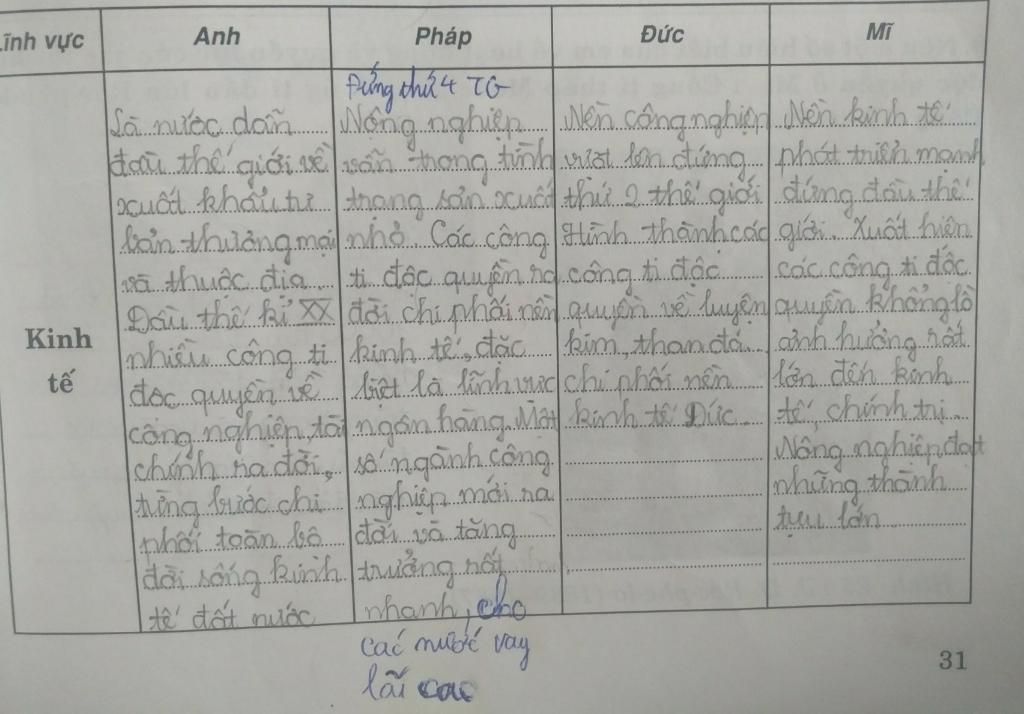 Lĩnh vực
Anh
Pháp
Đức
Mĩ
Kinh
tế
Là nước dẫn
đầu thế giới về
xuất khẩu tư
bản thương mại
và thuộc địa
Đầu thế kỉ XX
nhiều công ti
độc quyền về
công nghiệp, tài
chính ra đời,
từng bước chi
phối toàn bộ
đời sống kinh
tế đất nước
Đứng thứ 4 TG
Nông nghiệp
vẫn trong tình
trạng sản xuất
nhỏ. Các công
ti độc quyền ra
đời chi phối nền
kinh tế, đặc
biệt là lĩnh vực
ngân hàng. Một
số ngành công
nghiệp mới ra
đời và tăng
trưởng rất
nhanh, cho
các nước vay
lãi cao
Nền công nghiệp
vượt lên đứng
thứ 2 thế giới
Hình thành các
công ti độc
quyền về luyện
kim, than đá
chi phối nền
kinh tế Đức
Nền kinh tế
phát triển mạnh
đứng đầu thế
giới. Xuất hiện
các công ti độc
quyền khổng lồ
ảnh hưởng rất
lớn đến kinh
tế, chính trị
Nông nghiệp đạt
những thành
tựu lớn
31